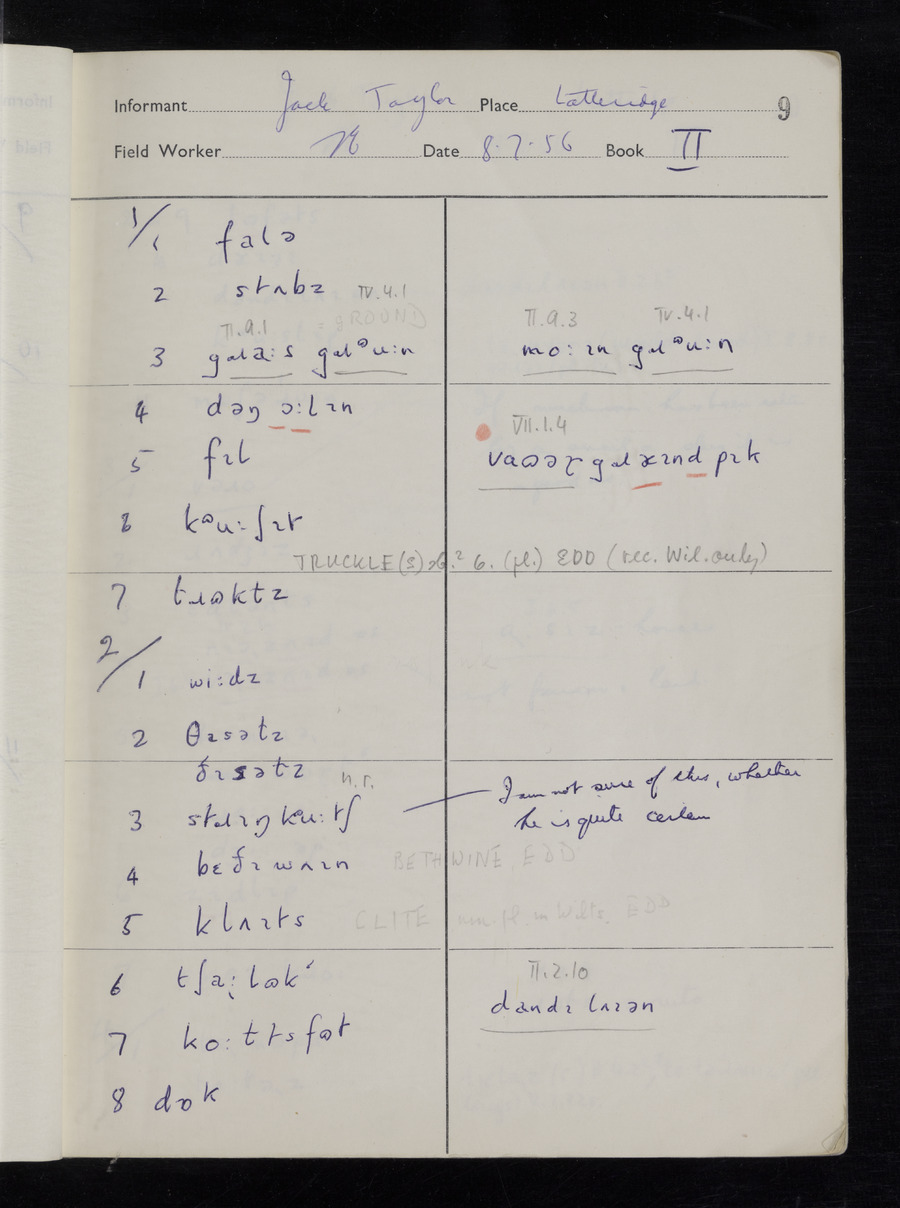 Informant Jack Taylor Place Latteridge 9
Field Worker Date 8.7.56 Book II
1/1 falə
2 stʌbz IV.4.1
= GROUND
II.9.1 II.9.3 IV.4.1
3 gɹaːs gɹᵊuːn moːɪn gɹᵊuːn
4 dəŋ ɔːlɪn
5 fɪl VII.1.4
gɹ pɪk
6 kᵊuːʃɪt
TRUCKLE(S) sb.² 6. (pl.) EDD (rec. Wil. only)
7 tɹɷktz
2/1 wiːdz
2 θɪsətz
ðɪsətz n.r.
3 stɹɪŋ kᵊuːtʃ I am not sure of this, whether
he is quite certain
4 bɛðɪwʌɪn BETHWINE, EDD
5 klʌɪts CLITE in Wilts. EDD
6 tʃaːlɷk II.2.10
dandɪlʌɪən
7 koːltsfɷt
8 dɒk